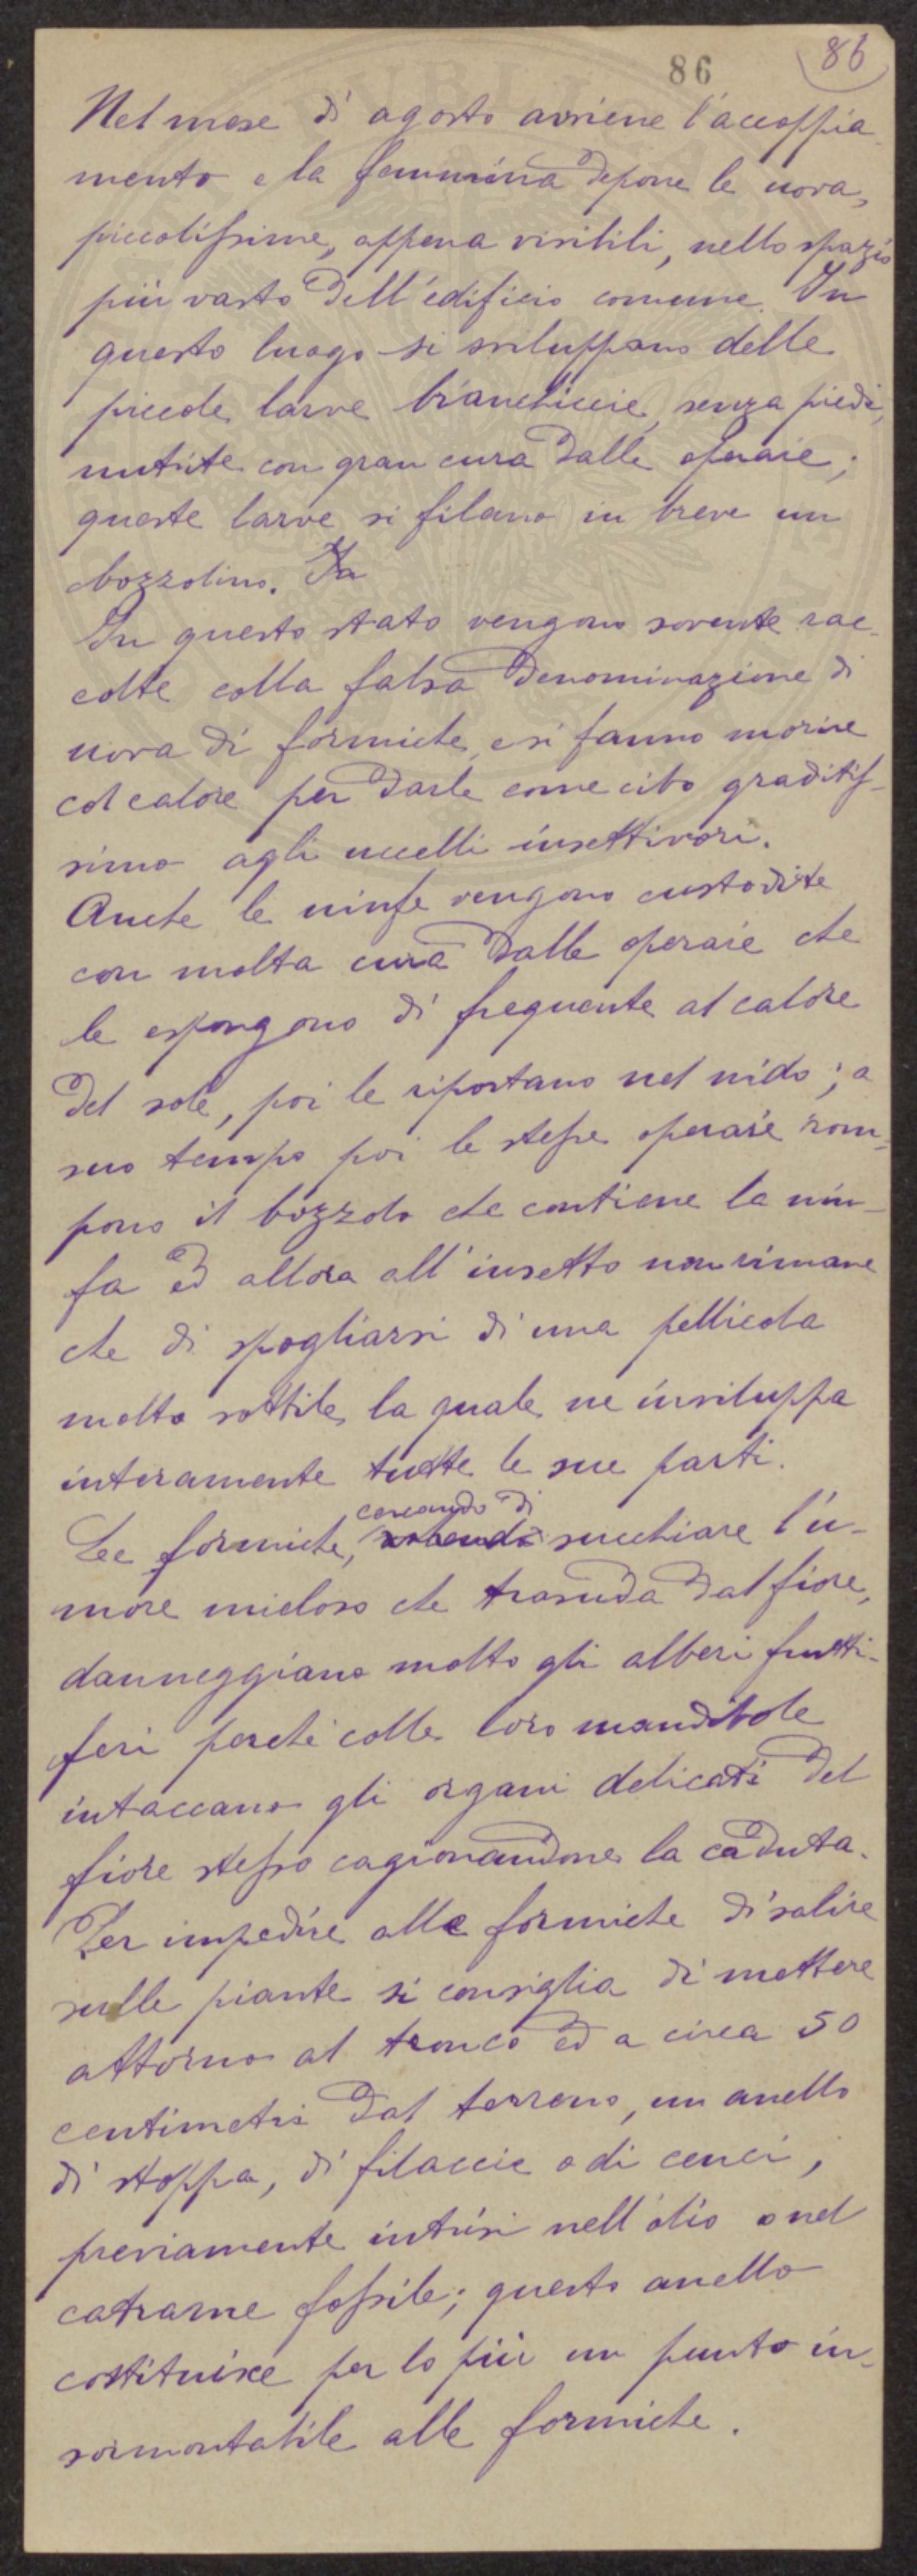 86
86
Nel mese di agosto avviene l'accoppia-
mento e la femmina depone le uova,
piccolissime, appena visibili, nello spazio
più vasto dell'edificio comune. In
questo luogo si sviluppano delle
piccole larve bianchiccie, senza piedi,
nutrite con gran cura dalle operaie;
queste larve si filano in breve un
bozzolino. Ia
In questo stato vengono sovente rac-
colte colla falsa denominazione di
uova di formiche, e si fanno morire
col calore per darle come cibo graditis-
simo agli uccelli insettivori.
Anche le ninfe vengono custodite
con molta cura dalle operaie che
le espongono di frequente al calore
del sole, poi le riportano nel nido; a
suo tempo poi le stesse operaie rom-
pono il bozzolo che contiene la nin-
fa ed allora all'insetto non rimane
che di spogliarsi di una pellicola
molto sottile, la quale ne inviluppa
interamente tutte le sue parti.
cercando di
Le formiche, succhiare l'u-
more mieloso che trasuda dal fiore,
danneggiano molto gli alberi frutti-
feri perchè colle loro mandibole
intaccano gli organi delicati del
fiore stesso cagionandone la caduta.
Per impedire alle formiche di salire
sulle piante si consiglia di mettere
attorno al tronco ed a circa 50
centimetri dal terreno, un anello
di stoppa, di filaccie o di cenci,
previamente intrisi nell'olio o nel
catrame fossile; questo anello
costituisce per lo più un punto in-
sormontabile alle formiche.